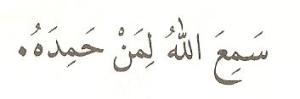 سَمِعَ اللّٰهُ لِمَنْ حَمِدَهُ.